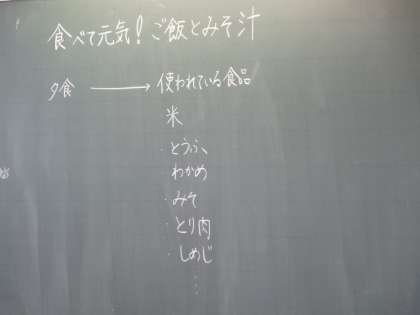 食べて元気！ご飯とみそ汁
夕食 → 使われている食品
米
・とうふ
わかめ
・みそ
・とり肉
・しめじ
⋮